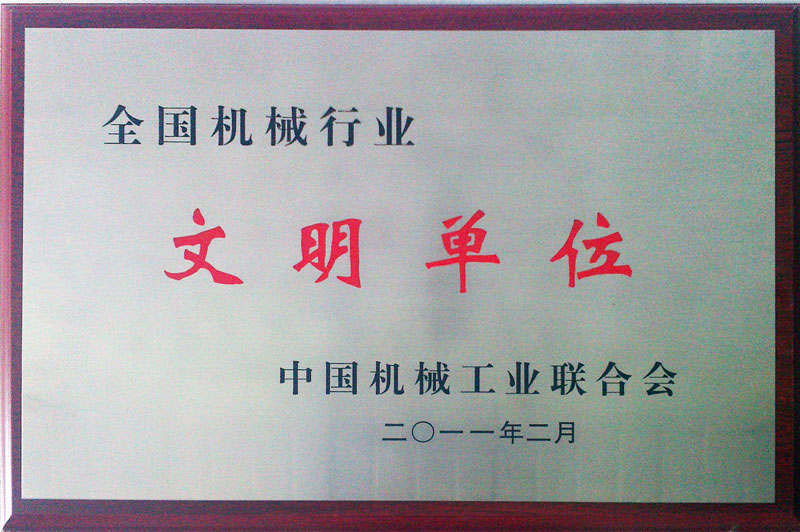 全国机械行业
文明单位
中国机械工业联合会
二〇一一年二月